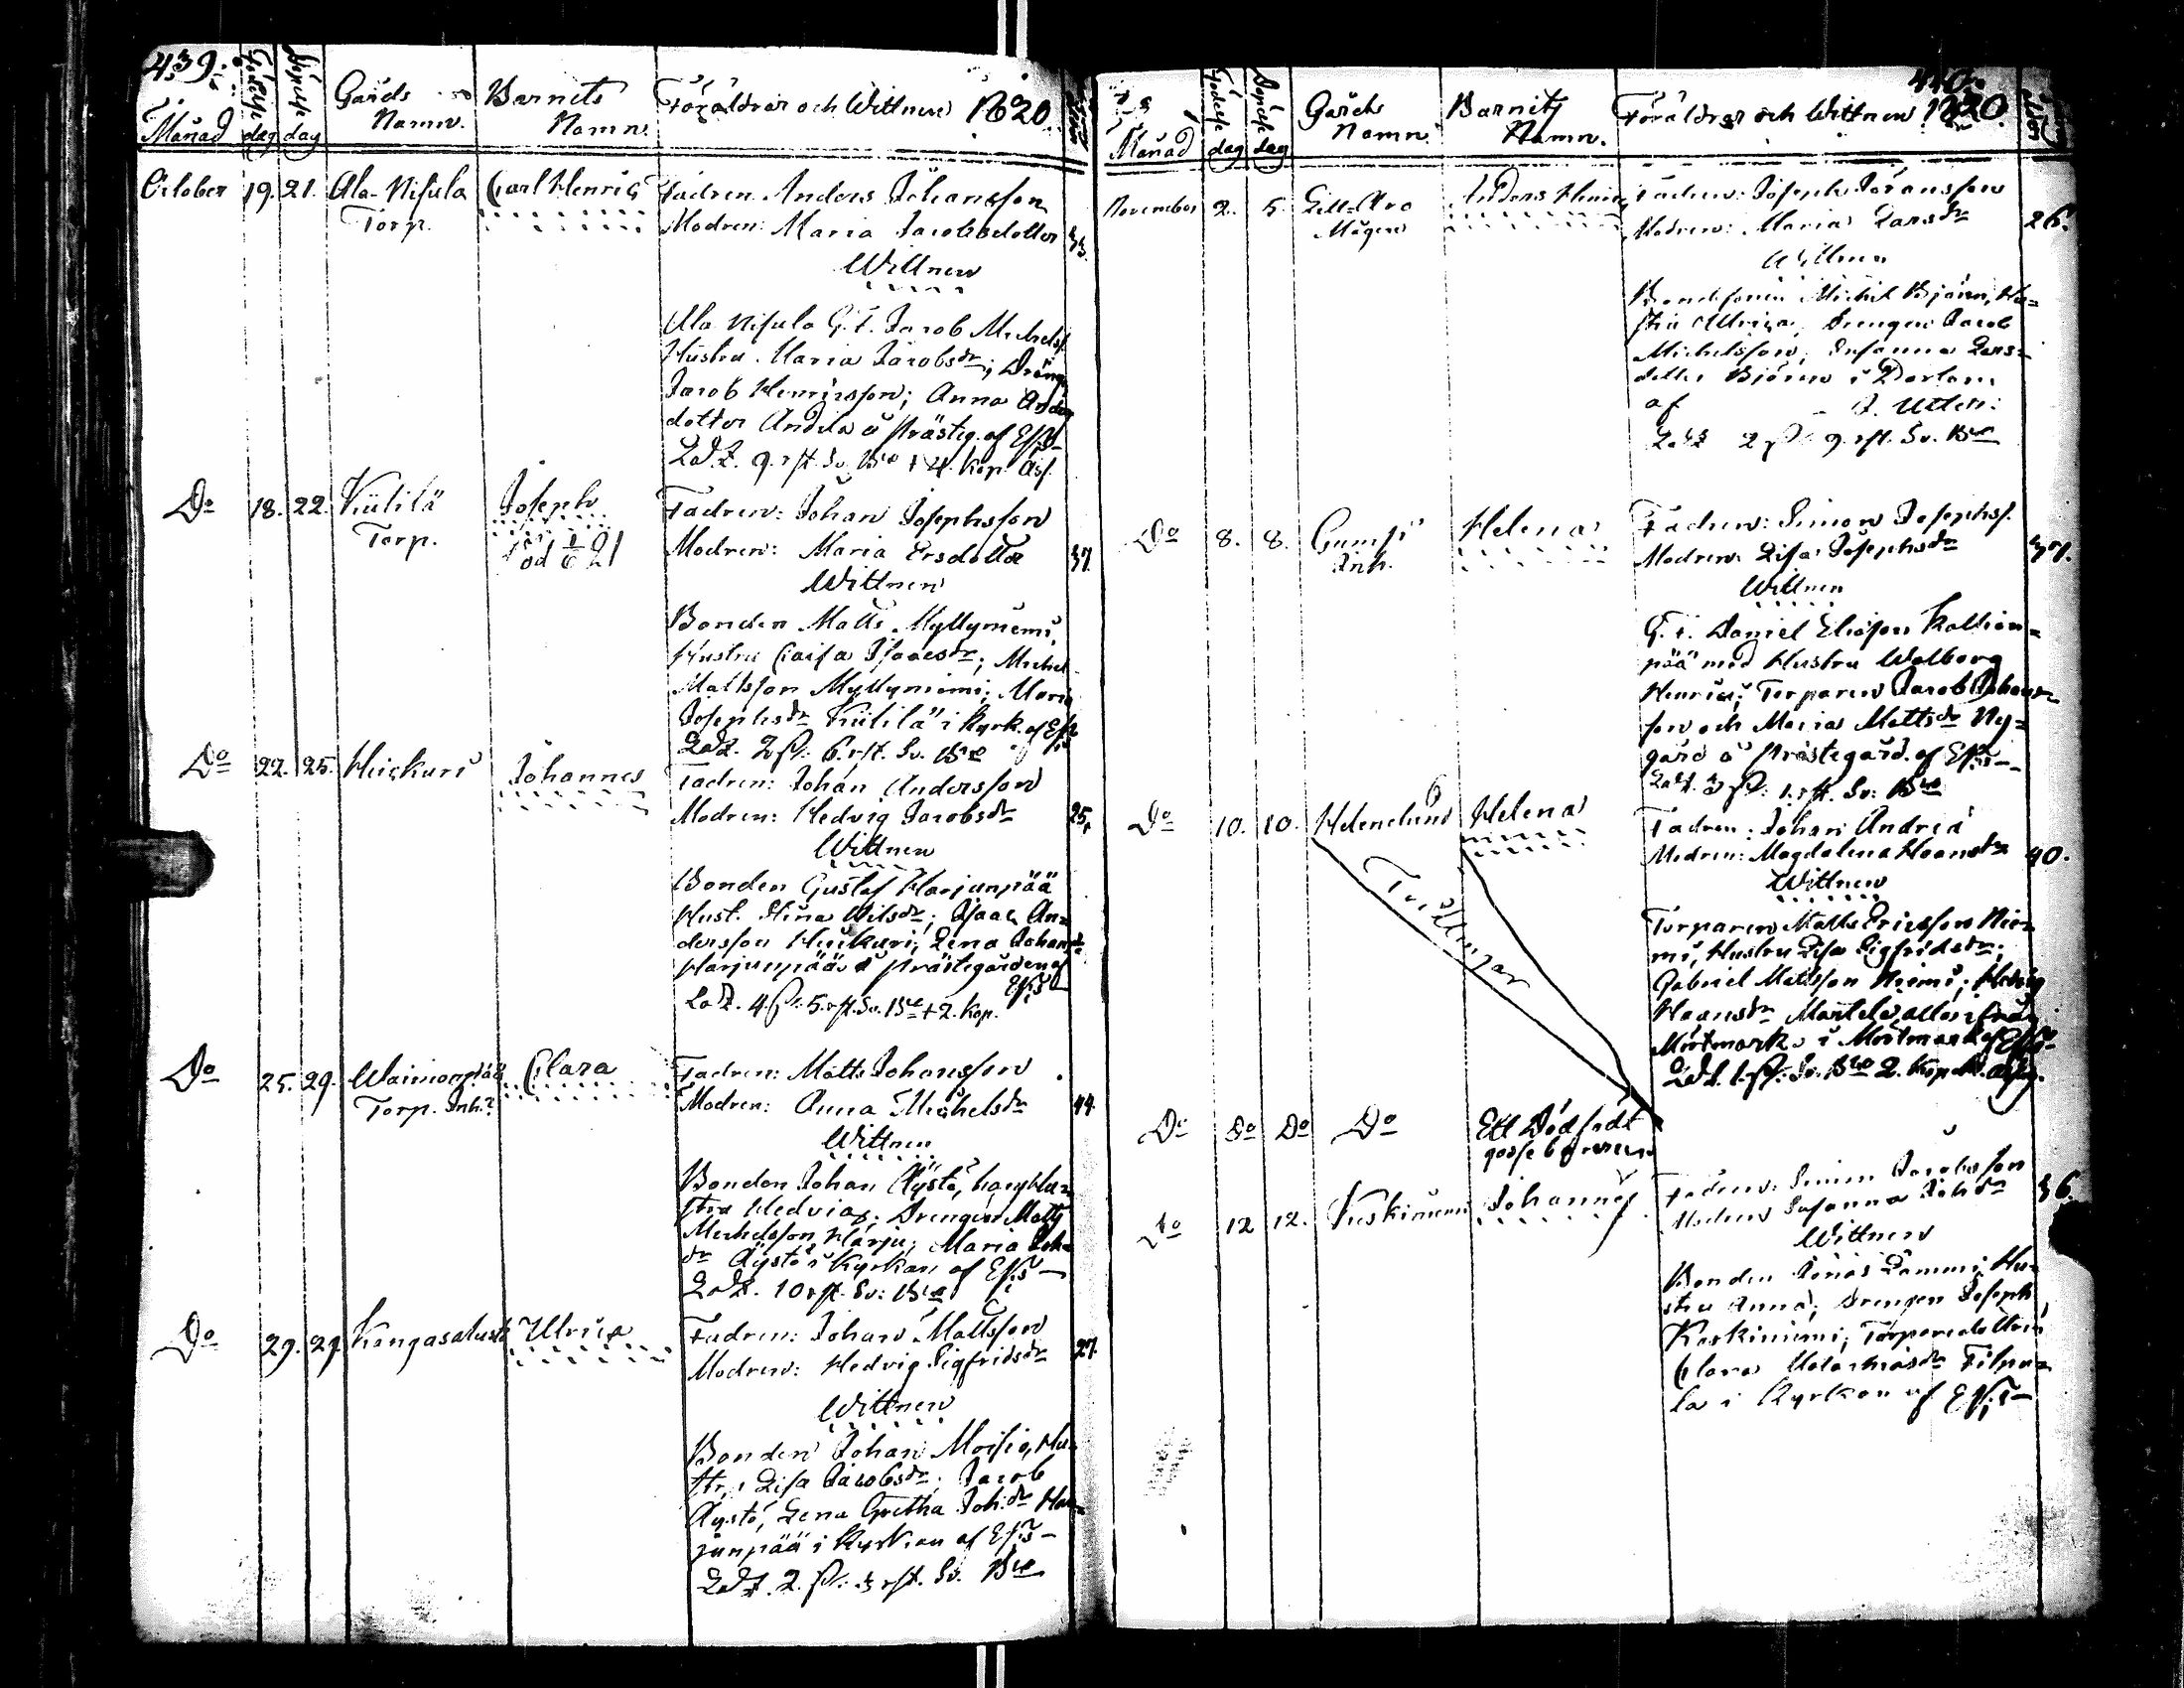 439.
Månad
Födelse dag
Döpelse dag
Gårds Namn.
Barnets Namn.
Föräldrar och Wittnen 1820.
October 19. 21. Ala-Nisula Carl Henric Fadren Anders Johansson
Torp. Modren: Maria Jacobsdotter 33.
Wittnen
Ala Nisula G. f. Jacob Michelss.
Hustru Maria Jacobsdr; Dräng
Jacob Henricsson; Anna Anders
dotter Andila å Prästeg. af
9. rst. Sv. Bco + 4. Kop. Ass.
Do 18. 22. Kiitilä Joseph Fadren: Johan Josephsson
Torp. Modren: Maria Ersdotter 37.
Wittnen
Bonden Matts Myllyniemi,
Hustru Caisa Isaacsdr; Michel
Mattsson Myllyniemi; Maria
Josephsdr Kiitilä i Kyrk. af
6. rst. Sv. Bco
Do 22. 25. Heickuri Johannes Fadren: Johan Andersson
Modren: Hedvig Jacobsdr 25.
Wittnen
Bonden Gustaf Harjunpää
Hust. Stina Nilsdr; Isaac An=
dersson Heickuri; Lena Johansdr
Harjunpää å Prästegården af
4. 5. rst. Sv. Bco + 2. Kop.
Do 25. 29. Waimonpää Clara Fadren: Matts Johansson
Torp. Inh. Modren: Anna Michelsdr 44.
Wittnen
Bonden Johan Äystö, hans Hu=
stru Hedvig; Drengen Matts
Michelsson Harju; Maria Joh.
dr Äystö i Kyrkan af
10 rst. Sv: Bco
Do 29. 29. Kangasalusta Ulrica Fadren: Johan Mattsson
Modren: Hedvig Sigfridsdr 27.
Wittnen
Bonden Johan Moisio, Hu=
stru Lisa Jacobsdr; Jacob
Äystö, Lena Gretha Joh:dr Har=
junpää i Kyrkan af
2. 3 rst. Sv. Bco
440.
Månad
Födelse dag
Döpelse dag
Gårds Namn.
Barnets Namn.
Föräldrar och Wittnen 1820.
November 2. 5. Anders Henric Fadren: Joseph Göransson
Modren: Maria Larsdr 26.
Wittnen
Bondesonen Michel Björn, Hu=
stru Ulrica, Drengen Jacob
Michelsson; Susanna Lars=
dotter Björn i
af
2 9. rst. Sv. Bco
Do 8. 8. Gumsi Helena Fadren: Simon Josephss.
Inh. Modren: Lisa Josephsdr 37.
Wittnen
G. f. Daniel Eliasson Kallion=
pää med Hustru Walborg
Henricsdr; Torparen Jacob Johans=
son och Maria Mattsdr Ny=
gård å Prästegård. af
3 1. rst. Sv: Bco
Do 10. 10. Helenelund Helena Fadren: Johan Andreä
Modren: Magdalena Hansdr 40.
Wittnen
Tvillingar
Torparen Matts Ericsson Nie=
mi, Hustru Lisa Sigfridsdr;
Gabriel Mattsson Niemi; Hedvig
Hansdr Martela, alla ifrån
Mörtmark i Mörtmark af
1. Sv. Bco 2. Kop.
Do Do Do Do Ett Dödfödt
gosse barn
Do 12 12. Keskiniemi Johannes Fadren: Simon Jacobsson
Modren Susanna Joh:dr 36.
Wittnen
Bonden Jonas Lammi, Hu=
stru Anna; Drengen Joseph
Keskiniemi; Torparedottren
Clara Malachiasdr Filpu=
la i Kyrkan af